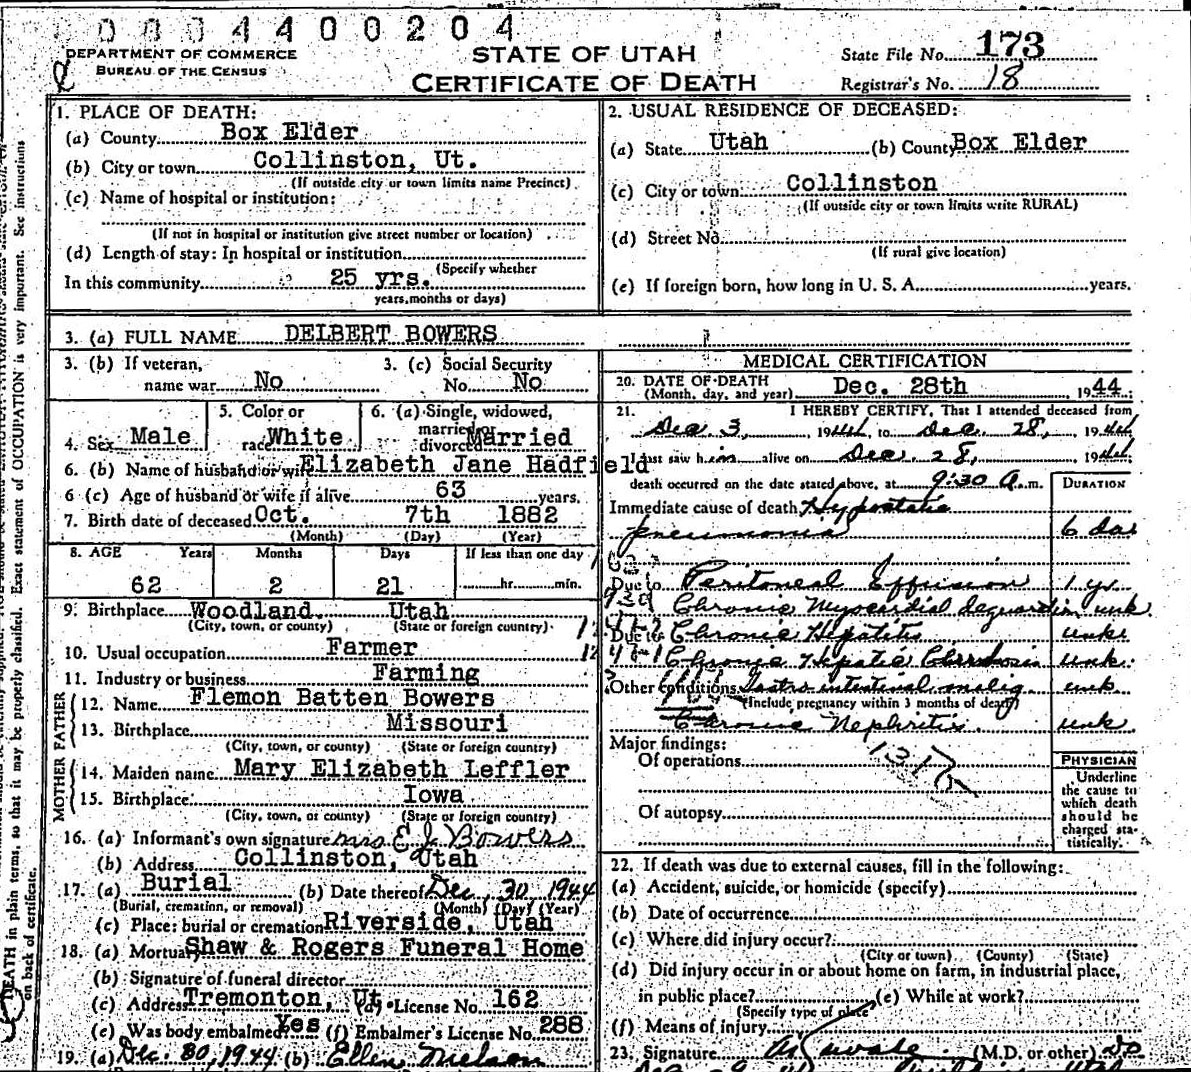 0004400204
DEPARTMENT OF COMMERCE
BUREAU OF THE CENSUS
STATE OF UTAH
CERTIFICATE OF DEATH
State File No. 173
Registrar's No. 18
1. PLACE OF DEATH:
(a) County Box Elder
(b) City or town Collinston, Ut.
(If outside city or town limits name Precinct)
(c) Name of hospital or institution:
(If not in hospital or institution give street number or location)
(d) Length of stay: In hospital or institution
(Specify whether
In this community 25 yrs.
years, months or days)
2. USUAL RESIDENCE OF DECEASED:
(a) State Utah (b) County Box Elder
(c) City or town Collinston
(If outside city or town limits write RURAL)
(d) Street No.
(If rural give location)
(e) If foreign born, how long in U. S. A. years.
3. (a) FULL NAME DELBERT BOWERS
3. (b) If veteran,
name war No
3. (c) Social Security
No. No
4. Sex Male
5. Color or
race White
6. (a) Single, widowed,
married or
divorced Married
6. (b) Name of husband or wife Elizabeth Jane Hadfield
6 (c) Age of husband or wife if alive 63 years.
7. Birth date of deceased Oct. 7th 1882
(Month) (Day) (Year)
8. AGE Years Months Days If less than one day
62 2 21 hr. min.
9. Birthplace Woodland Utah
(City, town, or county) (State or foreign country)
10. Usual occupation Farmer
11. Industry or business Farming
FATHER
12. Name Flemon Batten Bowers
13. Birthplace Missouri
(City, town, or county) (State or foreign country)
MOTHER
14. Maiden name Mary Elizabeth Leffler
15. Birthplace Iowa
(City, town, or county) (State or foreign country)
16. (a) Informant's own signature Mrs E J Bowers
(b) Address Collinston, Utah
17. (a) Burial (b) Date thereof Dec, 30 1944
(Burial, cremation, or removal) (Month) (Day) (Year)
(c) Place: burial or cremation Riverside, Utah
18. (a) Mortuary Shaw & Rogers Funeral Home
(b) Signature of funeral director
(c) Address Tremonton, Ut (d) License No. 162
(e) Was body embalmed Yes (f) Embalmer's License No. 288
19. (a) Dec. 30, 1944 (b) Ellen Nielson
MEDICAL CERTIFICATION
20. DATE OF DEATH
(Month, day, and year) Dec. 28th 1944
21. I HEREBY CERTIFY, That I attended deceased from
Dec. 3, 1944, to Dec. 28, 1944
I last saw him alive on Dec. 28, 1944
death occurred on the date stated above, at 9:30 A.m.
DURATION
Immediate cause of death Hypostatic
pneumonia 6 das
Due to Peritoneal Effusion 1 yr
Chronic Myocardial degeneration unk
Due to Chronic Hepatitis unk
Chronic Hepatic Cirrhosis unk.
Other conditions Gastro intestinal malig. unk.
(Include pregnancy within 3 months of death)
Chronic Nephritis. unk
Major findings:
Of operations
Of autopsy
PHYSICIAN
Underline
the cause to
which death
should be
charged sta-
tistically.
22. If death was due to external causes, fill in the following:
(a) Accident, suicide, or homicide (specify)
(b) Date of occurrence
(c) Where did injury occur?
(City or town) (County) (State)
(d) Did injury occur in or about home on farm, in industrial place,
in public place? (e) While at work?
(Specify type of place)
(f) Means of injury
23. Signature (M.D. or other)
DEATH in plain terms, so that it may be properly classified. Exact statement of OCCUPATION is very important. See instructions
on back of certificate.